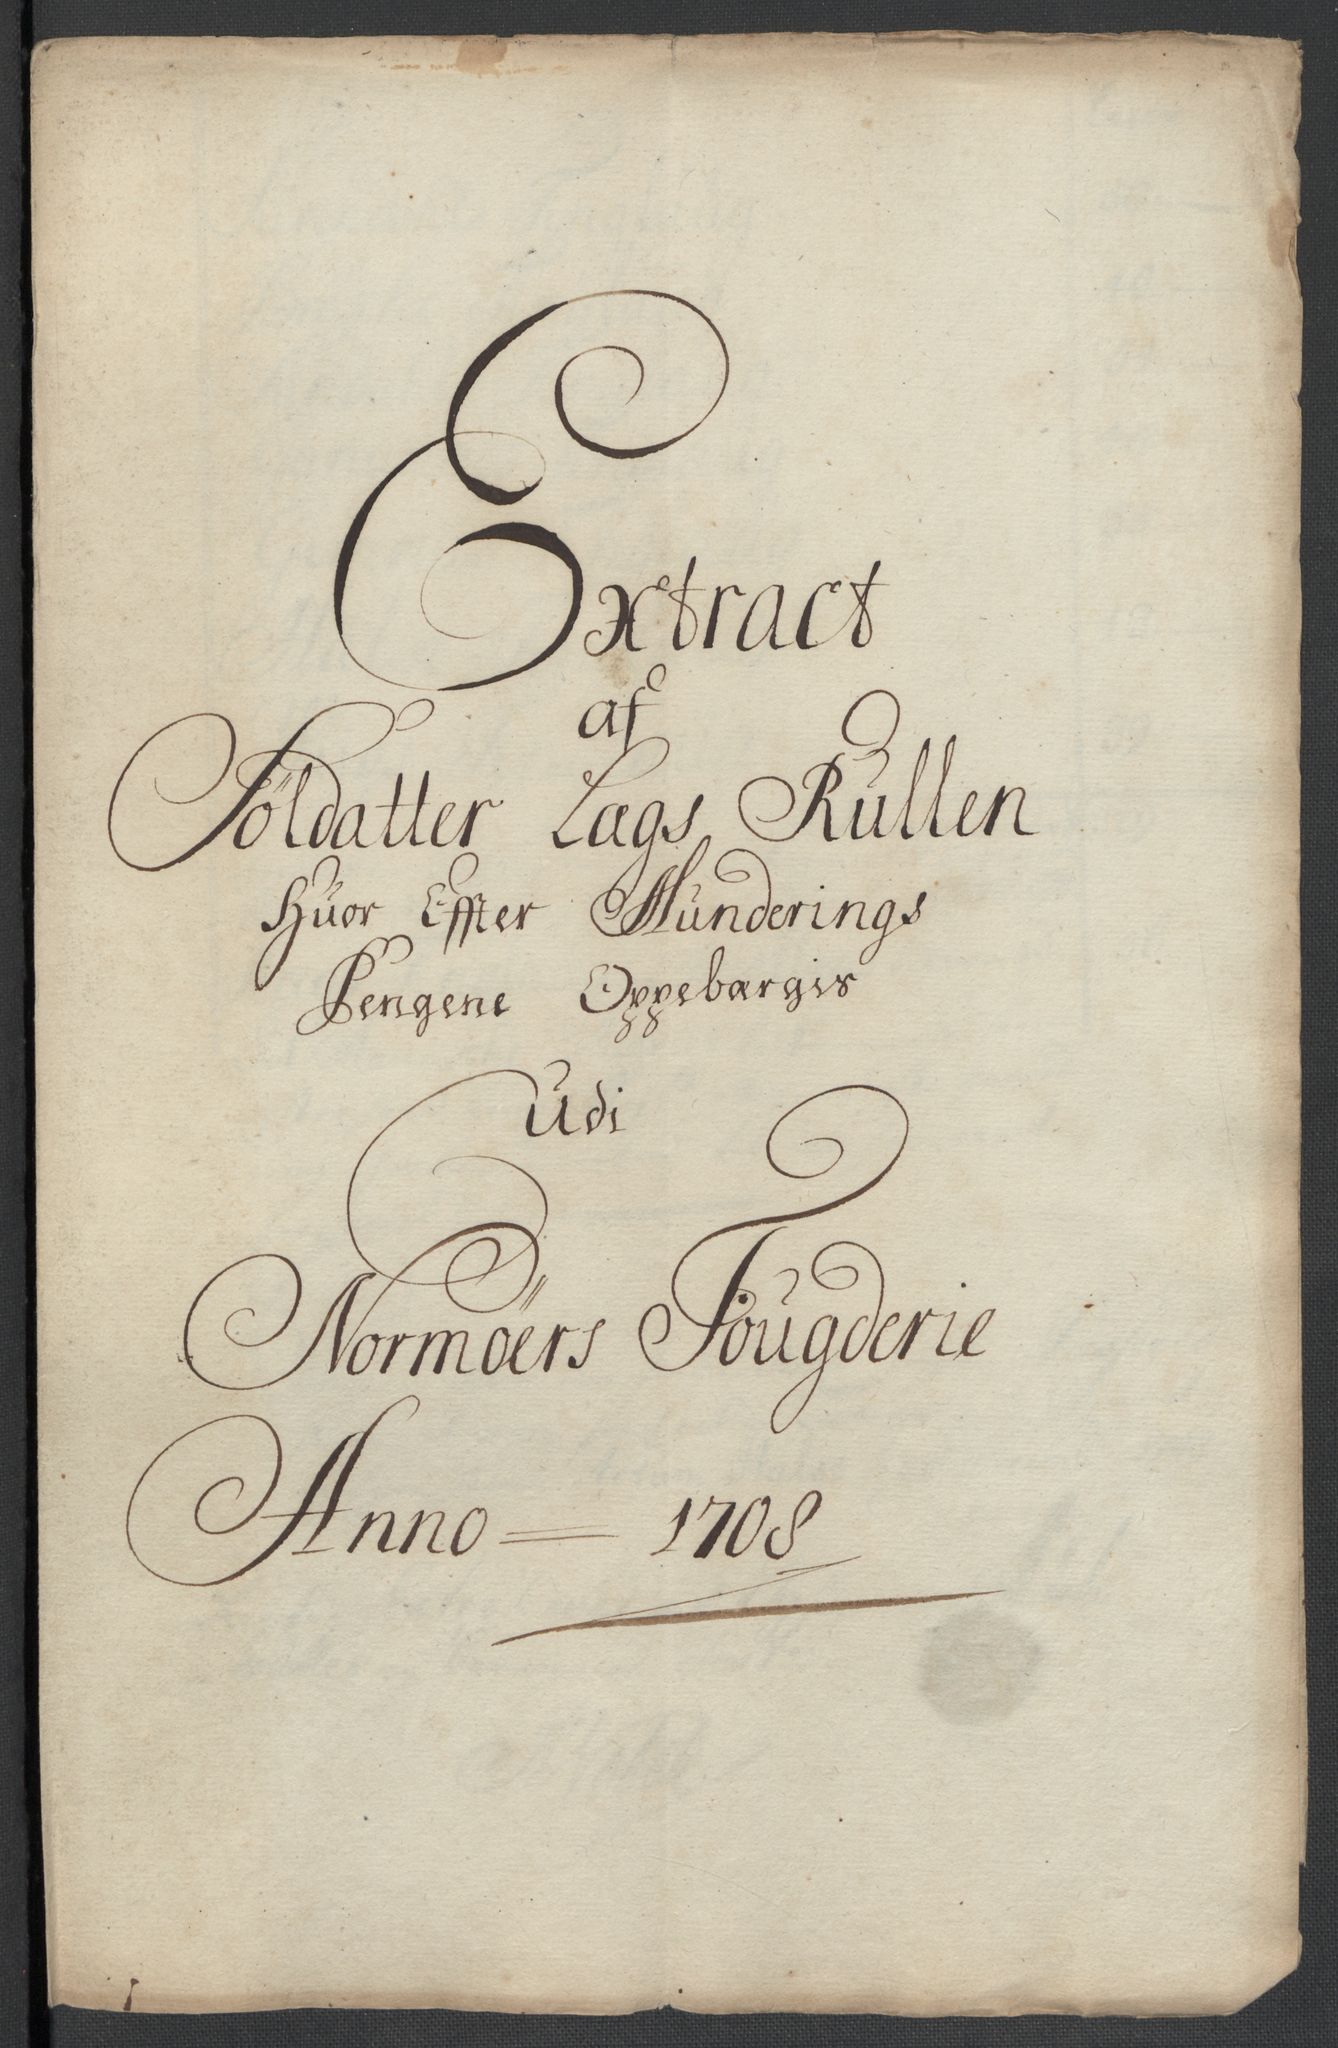 Extract
af
Söldatter Lægs Rullen
Huor Effter Munderings
Pengene Oppebærgis
Udi
Normöers Fougderie
Anno 1708